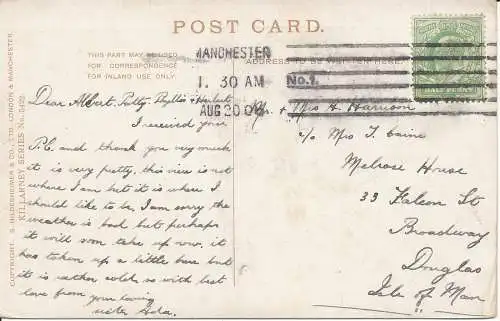 POST CARD.
THIS PART MAY BE USED
FOR CORRESPONDENCE
FOR INLAND USE ONLY.
ADDRESS TO BE WRITTEN HERE.
MANCHESTER
1. 30 AM
AUG 20 06
No.1.
HALF PENNY
COPYRIGHT. S. HILDESHEIMER & CO., LTD. LONDON & MANCHESTER.
KILLARNEY SERIES No. 5402.
Dear Albert, Patty, Phyllis + Herbert
I received your
P.C. and thank you very much
it is very pretty. this view is not
where I am but it is where I
should like to be. I am sorry the
weather is bad but perhaps
it will soon take up now. it
has taken up a little here but
it is rather cold. so with best
love from your loving
sister Ada.
Mr. + Mrs H. Harrison
c/o Mrs T. Caine
Melrose House
33 Falcon St
Broadway
Douglas
Isle of Man